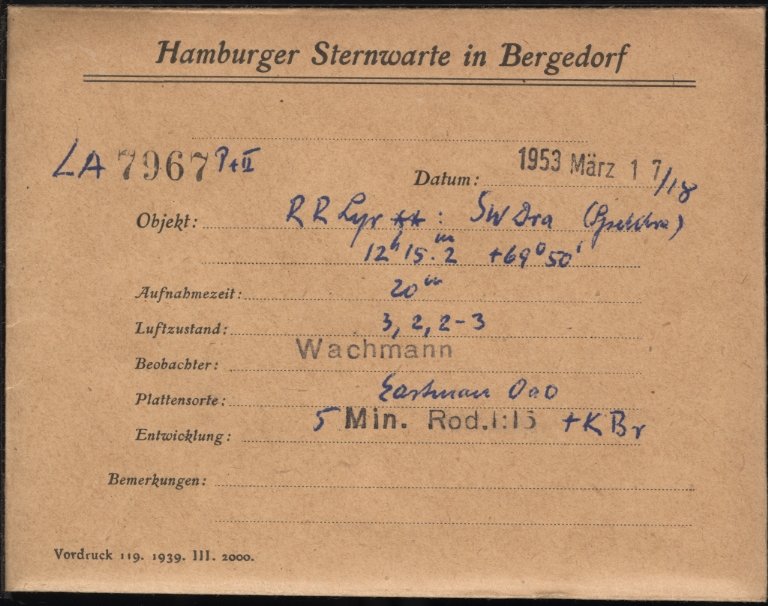 Hamburger Sternwarte in Bergedorf
LA 7967 P+II
Datum: 1953 März 17/18
Objekt: RR Lyr **: SW Dra
12h 15.m2 +69° 50'
Aufnahmezeit: 20m
Luftzustand: 3, 2, 2-3
Beobachter: Wachmann
Plattensorte: Eastman OaO
Entwicklung: 5 Min. Rod.1:15 +KBr
Bemerkungen:
Vordruck 119. 1939. III. 2000.